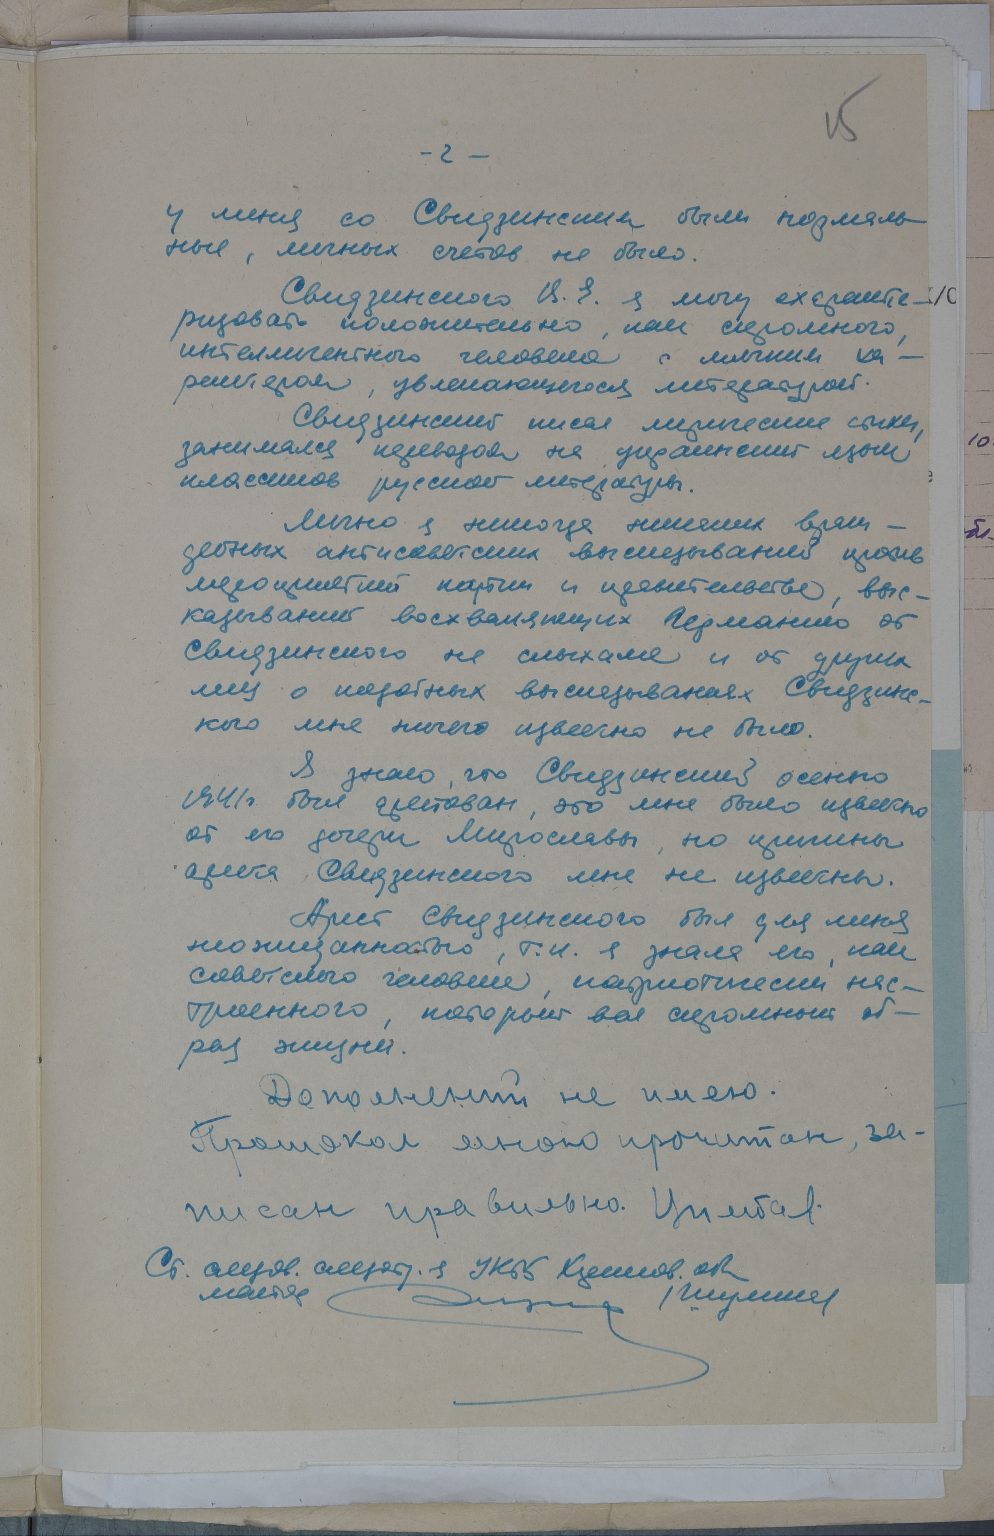 15
- 2 -
у меня со Свидзинским были нормаль-
ные, личных счетов не было.
Свидзинского В. Е. я могу охаракте-
ризовать положительно, как скромного,
интеллигентного человека с мягким ха-
рактером, увлекающегося литературой.
Свидзинский писал лирические стихи,
занимался переводом на украинский язык
классиков русской литературы.
Лично я никогда никаких враж-
дебных антисоветских высказываний против
мероприятий партии и правительства, выс-
казываний восхваляющих Германию от
Свидзинского не слыхала и от других
лиц о подобных высказываниях Свидзинс-
кого мне ничего известно не было.
Я знаю, что Свидзинский осенью
1941г. был арестован, это мне было известно
от его дочери Мирославы, но причины
ареста Свидзинского мне не известны.
Арест Свидзинского был для меня
неожиданностью, т.к. я знала его, как
советского человека, патриотически нас-
троенного, который вел скромный об-
раз жизни.
Дополнений не имею.
Протокол мною прочитан, за-
писан правильно. Цимбал
Ст. следов. следотд-я УКГБ Харьков. обл
майор